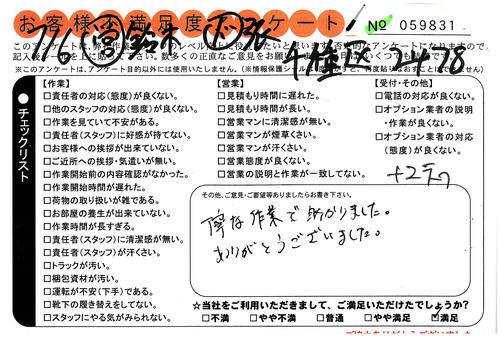 お客様不満足度アンケート
№ 059831
7/6 鈴木
千種区 2478
このアンケートは、弊社作業
※このアンケートは、アンケート目的以外には使用いたしません。
チェックリスト
【作業】
□責任者の対応(態度)が良くない。
□他のスタッフの対応(態度)が良くない。
□作業を見ていて不安がある。
□責任者(スタッフ)に好感が持てない。
□お客様への挨拶が出来ていない。
□ご近所への挨拶・気遣いが無い。
□作業開始前の内容確認がなかった。
□作業開始時間が遅れた。
□荷物の取り扱いが雑である。
□お部屋の養生が出来ていない。
□作業時間が長すぎる。
□責任者(スタッフ)に清潔感が無い。
□責任者(スタッフ)が汗くさい。
□トラックが汚い。
□梱包資材が汚い。
□運転が不安(下手)である。
□靴下の履き替えをしてない。
□スタッフにやる気がみられない。
【営業】
□見積もり時間に遅れた。
□見積もり時間が長い。
□営業マンに清潔感が無い。
□営業マンが煙草くさい。
□営業マンが汗くさい。
□営業態度が良くない。
□営業の説明と作業が一致してない。
【受付・その他】
□電話の対応が良くない。
□オプション業者の説明・作業が良くない。
□オプション業者の対応(態度)が良くない。
その他、ご意見・ご要望等ありましたらお書き下さい。
寧な作業で助かりました。
ありがとうございました。
☆当社をご利用いただきまして、ご満足いただけたでしょうか?
□不満 □やや不満 □普通 □やや満足 ☑満足